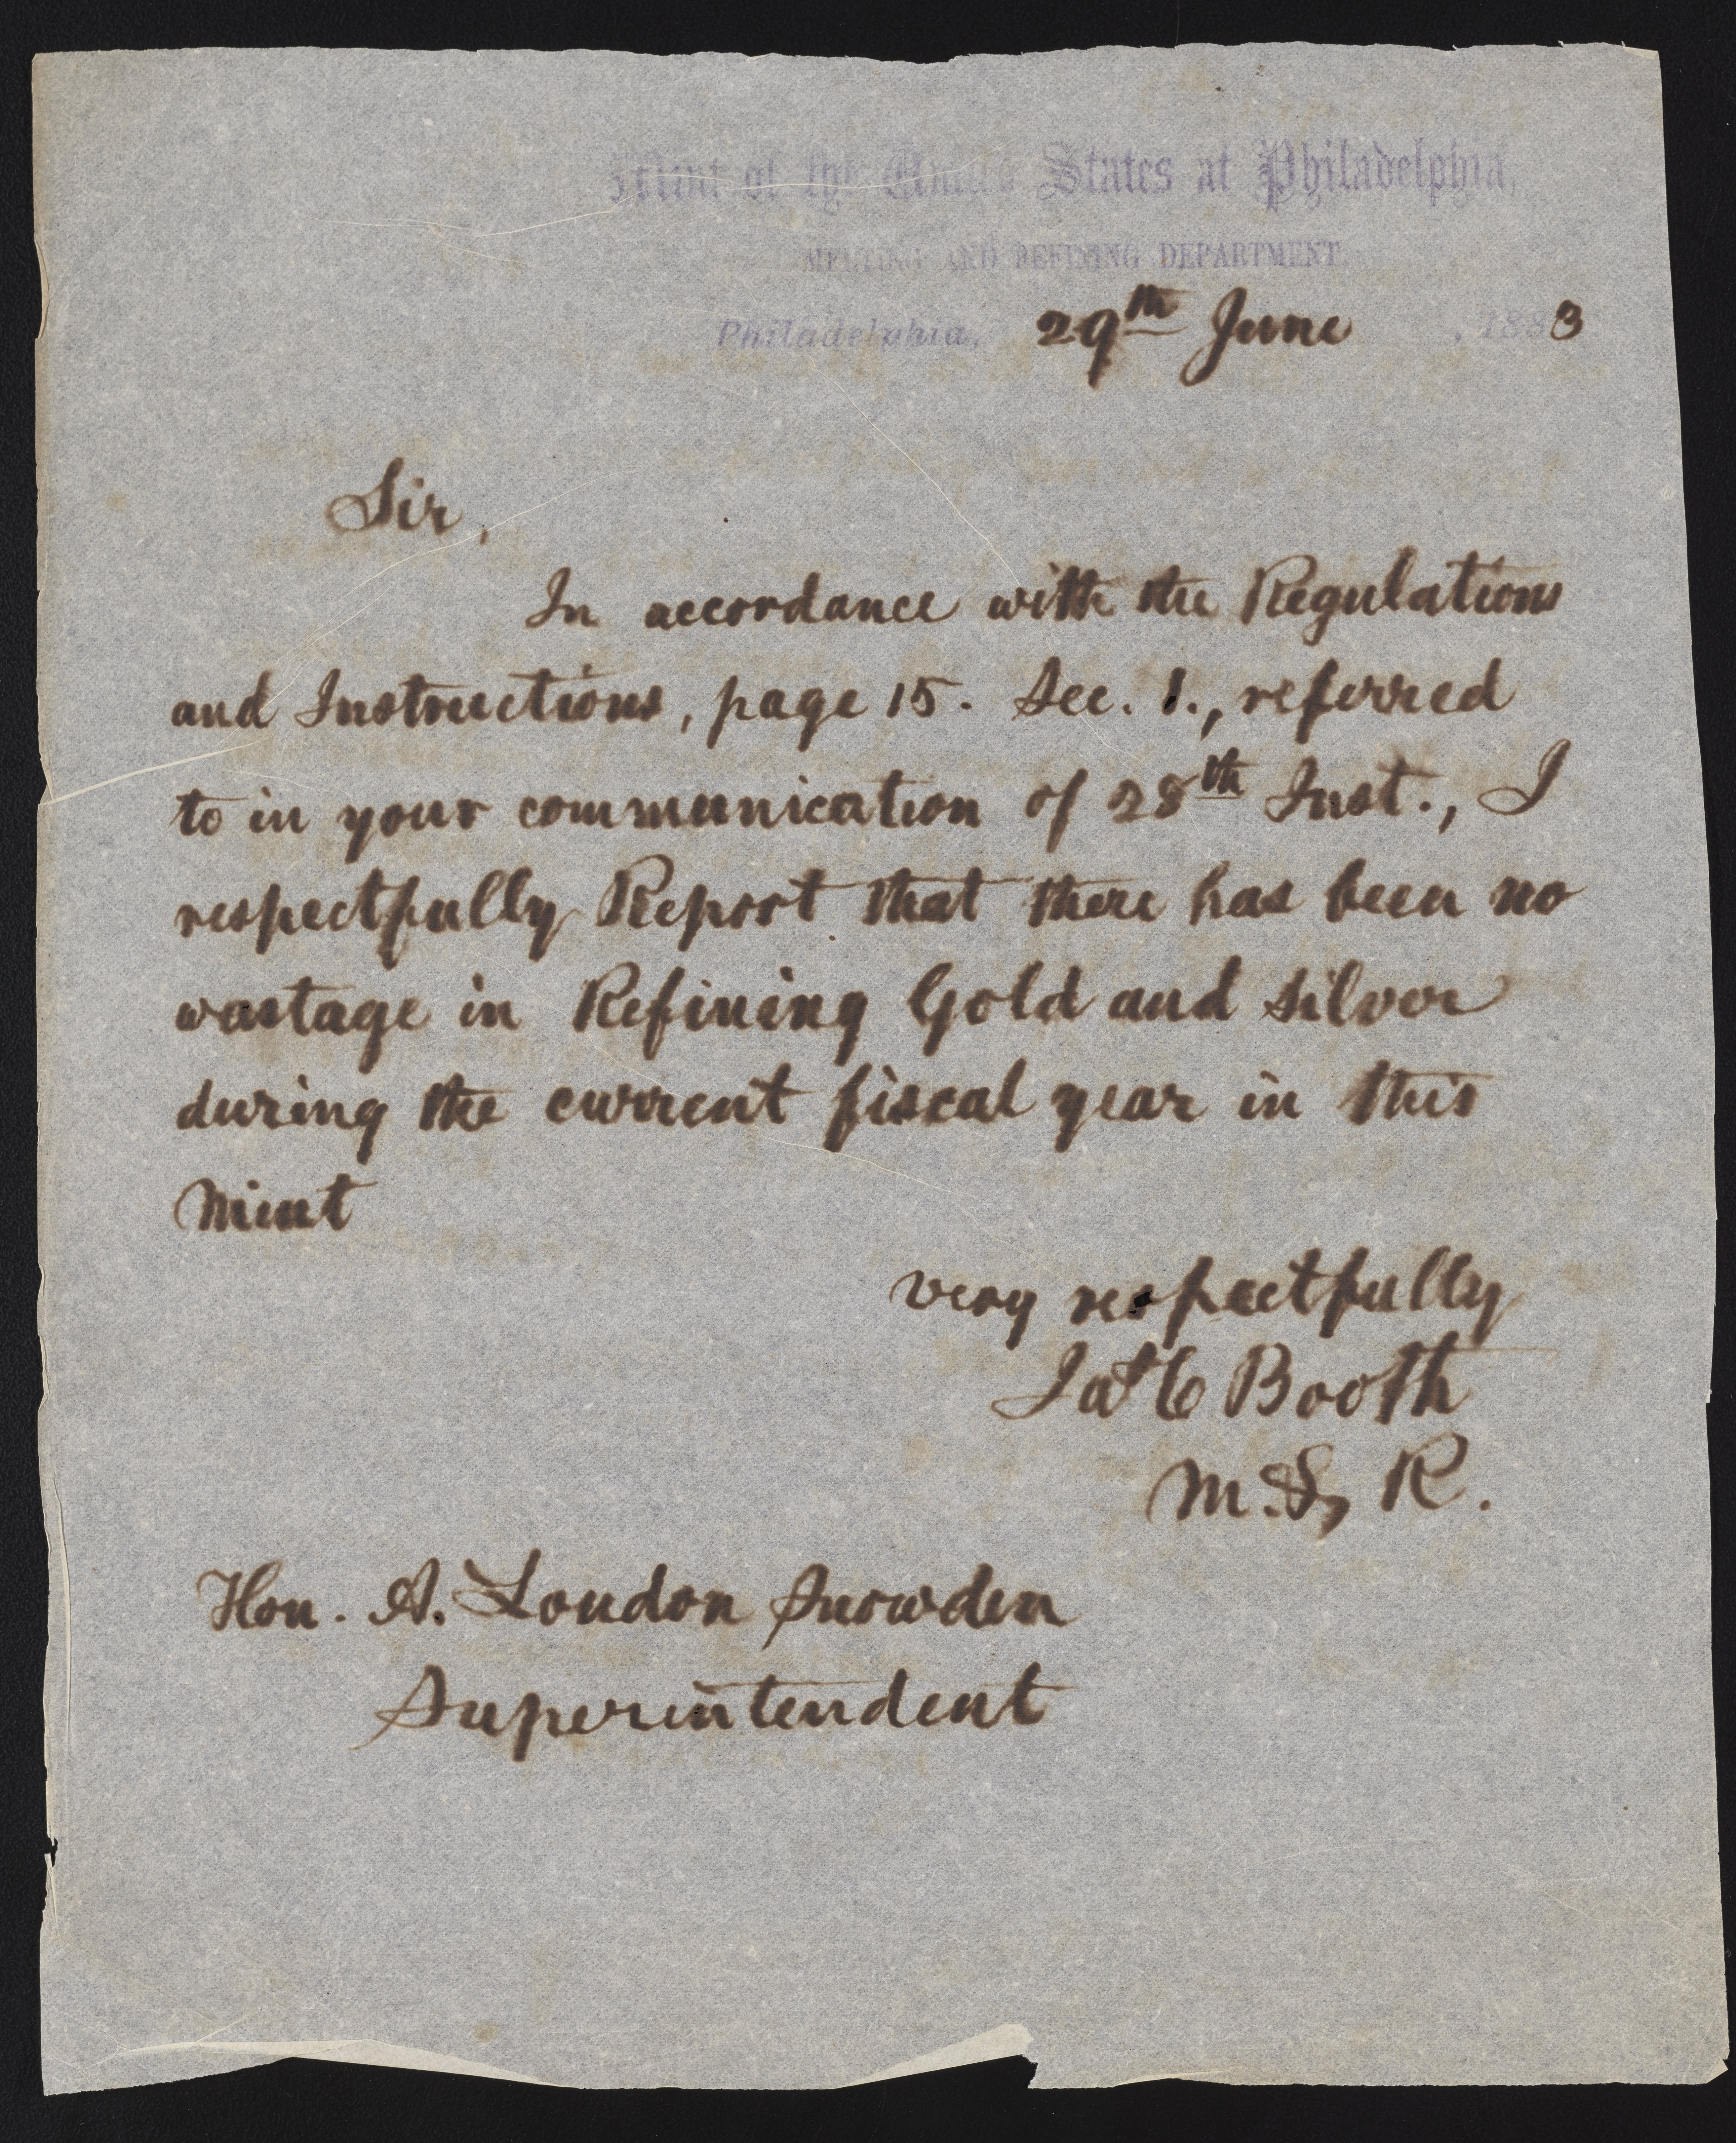 Mint of the United States at Philadelphia,
MELTING AND REFINING DEPARTMENT.
Philadelphia, 29th June , 1883
Sir,
In accordance with the Regulations
and Instructions, page 15. Sec. 1., referred
to in your communication of 28th Inst., I
respectfully Report that there has been no
wastage in Refining Gold and silver
during the current fiscal year in this
Mint
very respectfully
Jas C Booth
M. & R.
Hon. A. Loudon Snowden
Superintendent